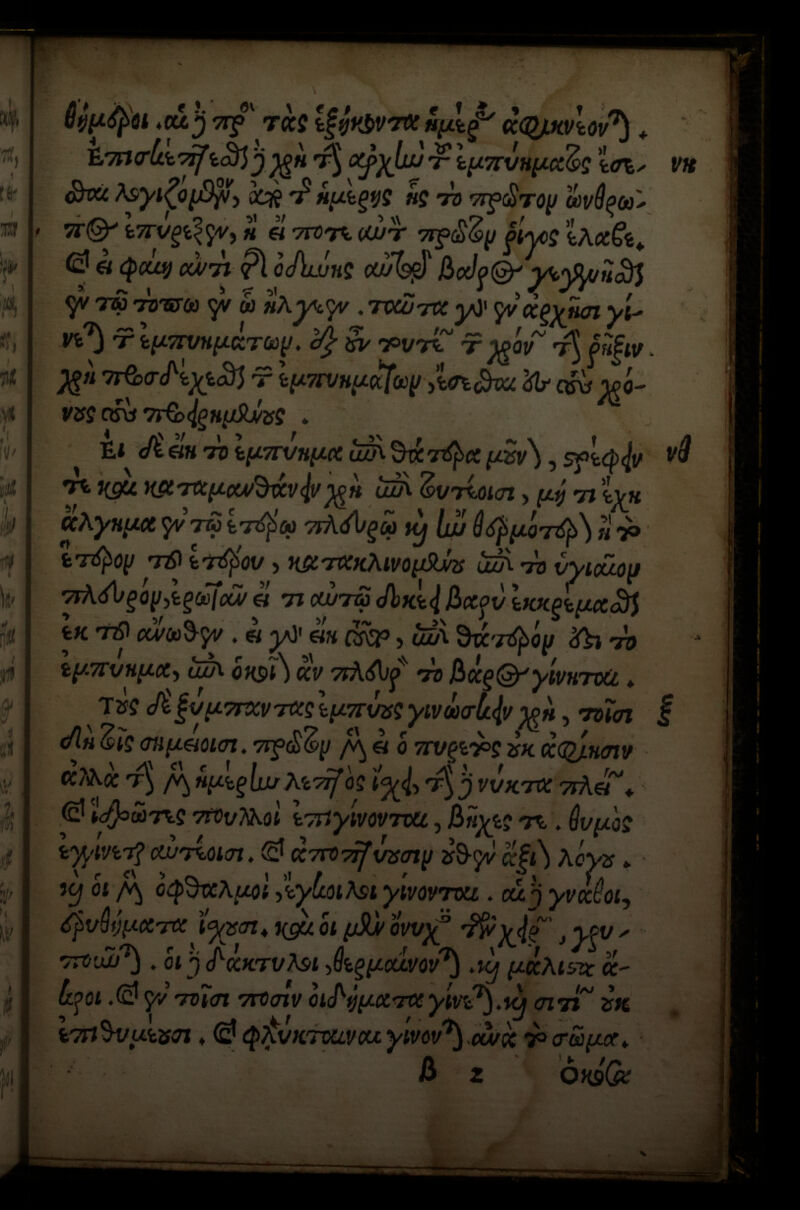 θήμεροι. αἱ δὲ πρὸς τὰς ἑξήκοντα ἡμέρας ἀφικνέονται.
Ἐπισκέπτεσθαι δὲ χρὴ τὴν ἀρχὴν τοῦ ἐμπυήματος ἔσε- νη
σθαι λογιζόμενον, ἀπὸ τῆς ἡμέρης ἧς τὸ πρῶτον ὤνθρω-
πος ἐπύρεξεν, ἢ εἴ ποτε αὐτὸν πρῶτον ῥίγος ἔλαβε,
καὶ εἰ φαίη ἀντὶ τῆς ὀδύνης αὐτῷ βάρος γεγενῆσθαι
ἐν τῷ τόπῳ ἐν ᾧ ἤλγεεν. ταῦτα γὰρ ἐν ἀρχῇσι γί-
νεται τῶν ἐμπυημάτων. ἐξ ὧν τουτέων τῶν χρόνων τὴν ῥῆξιν.
χρὴ προσδέχεσθαι τῶν ἐμπυημάτων, ἔσεσθαι ἐς τοὺς χρό-
νους τοὺς προειρημένους.
Εἰ δὲ εἴη τὸ ἐμπύημα ἐπὶ θάτερα μοῦνον, στρέφειν νθ
τε καὶ καταμανθάνειν χρὴ ἐπὶ τουτέοισι, μή τι ἔχῃ
ἄλγημα ἐν τῷ ἑτέρῳ πλευρῷ καὶ ἢν θερμότερον ᾖ τὸ
ἕτερον τοῦ ἑτέρου, κατακλινομένου ἐπὶ τὸ ὑγιαῖνον
πλευρόν, ἐρωτᾶν εἴ τι αὐτῷ δοκέει βαρὺ ἐκκρέμασθαι
ἐκ τοῦ ἄνωθεν. εἰ γὰρ εἴη τοῦτο, ἐπὶ θάτερόν ἐστι τὸ
ἐμπύημα, ἐπὶ ὁκοῖον ἂν πλευρὸν τὸ βάρος γίνηται.
Τοὺς δὲ ξύμπαντας ἐμπύους γινώσκειν χρὴ, τοῖσι ξ
δὴ τοῖς σημείοισι. πρῶτον μὲν εἰ ὁ πυρετὸς οὐκ ἀφίησιν
ἀλλὰ τὴν μὲν ἡμέρην λεπτὸς ἴσχει, τὴν δὲ νύκτα πλείων.
καὶ ἱδρῶτες πουλλοὶ ἐπιγίνονται, βῆχές τε. θυμὸς
ἐγγίνεται αὐτέοισι. καὶ ἀποπτύουσιν οὐθὲν ἄξιον λόγου.
καὶ οἱ μὲν ὀφθαλμοὶ, ἔγκοιλοι γίνονται. αἱ δὲ γνάθοι,
ἐρυθήματα ἴσχουσι, καὶ οἱ μὲν ὄνυχες τῶν χειρῶν, γρυ-
ποῦνται. οἱ δὲ δάκτυλοι, θερμαίνονται. καὶ μάλιστα ἄ-
κροι. καὶ ἐν τοῖσι ποσὶν οἰδήματα γίνεται. καὶ σιτίων οὐκ
ἐπιθυμέουσι, καὶ φλύκταιναι γίνονται ἀνὰ τὸ σῶμα.
β 2 ὁκόσα